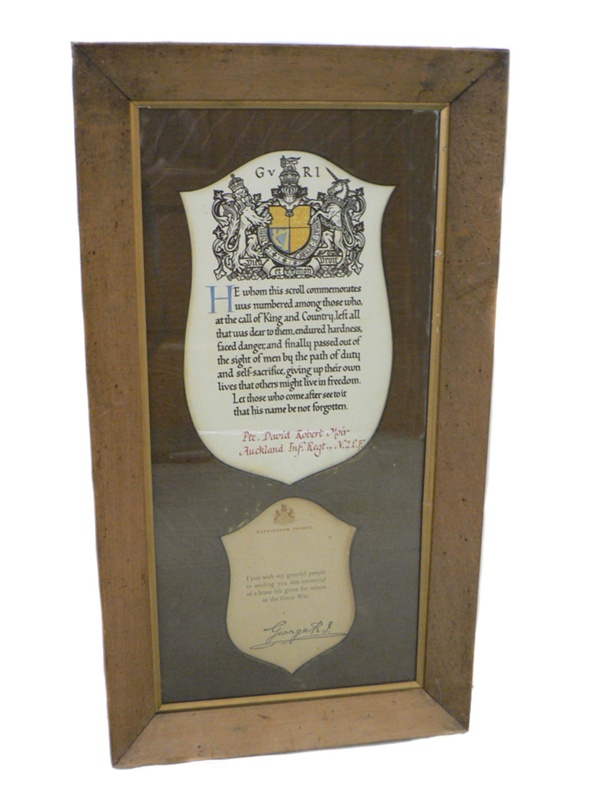 GV RI
Dieu et mon Droit
HE whom this scroll commemorates
was numbered among those who,
at the call of King and Country, left all
that was dear to them, endured hardness,
faced danger, and finally passed out of
the sight of men by the path of duty
and self-sacrifice, giving up their own
lives that others might live in freedom.
Let those who come after see to it
that his name be not forgotten.
Pte. David Robert Moir
Auckland Inf. Regt., N.Z.E.F.
BUCKINGHAM PALACE.
I join with my grateful people
in sending you this memorial
of a brave life given for others
in the Great War.
George R.I.